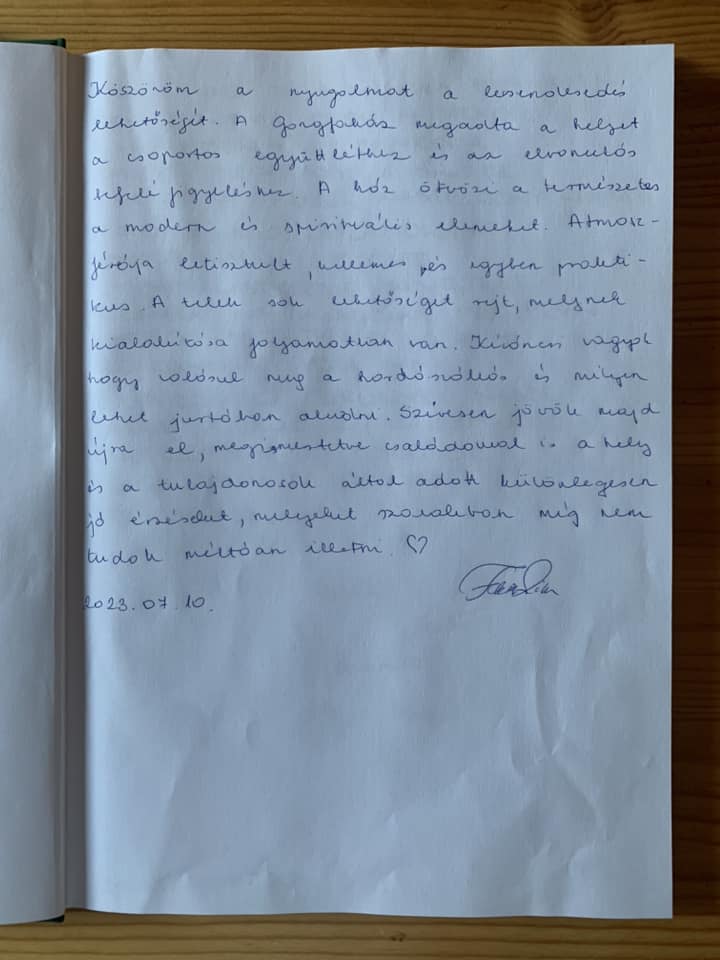 Köszönöm a nyugalmat a lecsendesedés
lehetőségét. A Gongfokház megadta a helyet
a csoportos együttléthez és az elvonulós
befelé figyeléshez. A ház ötvözi a természetes
a modern és spirituális elemeket. Atmosz-
férája letisztult, kellemes és egyben prakti-
kus. A telek sok lehetőséget rejt, melynek
kialakítása folyamatban van. Kíváncsi vagyok
hogy valósul meg a hordószállás és milyen
lehet jurtában aludni. Szívesen jövök majd
újra el, megismertetve családommal is a hely
és a tulajdonosok által adott különlegesen
jó érzéseket, melyeket szavakban még nem
tudok méltóan illetni. ♡
2023.07.10.